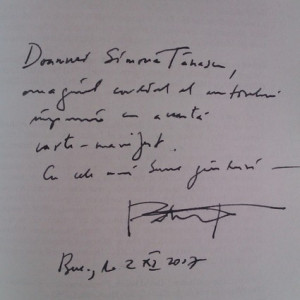 Doamnei Simona Tănase,
omagiul cordial al autorului
împreună cu această
carte-manifest.
Cu cele mai bune gânduri —
Buc., de 2 XI 2017